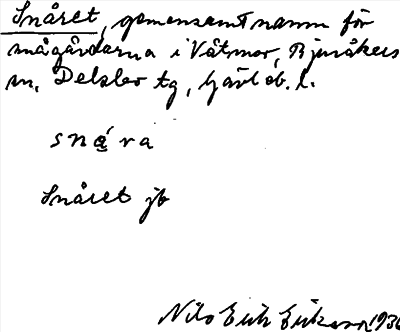 Snåret, gemensamt namn för
smågårdarna i Våtmor, Bjuråkers
sn, Delsbo tg, Gävleb. l.
snåra
Snåret jb
Nils Erik Eriksson 1936